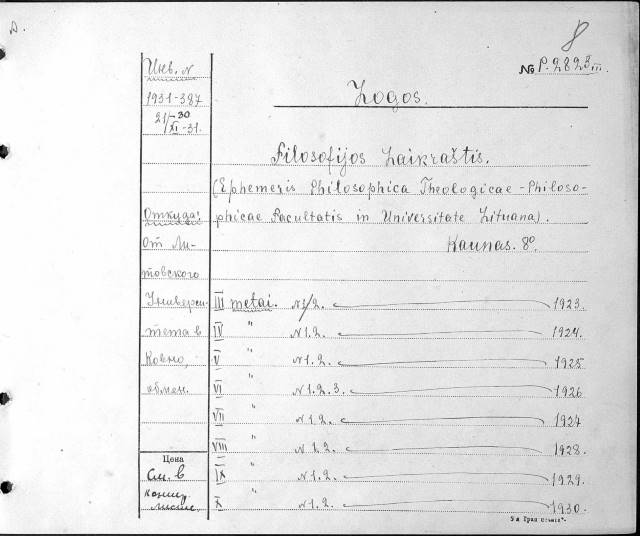 8
№ P. 2823 III.
Инв. N
1931-387
21/XI -30 -31.
Откуда:
От Ли-
товского
Универси-
тета в
Ковно,
обмен.
Цена
См. в
Logos.
Filosofijos Laikraštis.
(Ephemeris Philosophica Theologicae - Philoso-
phicae Facultatis in Universitate Lituana).
Kaunas. 8º.
III metai. N 1/2. 1923.
IV " N 1.2. 1924.
V " N 1.2. 1925
VI " N 1.2.3. 1926
VII " N 1.2. 1927
VIII " N 1.2. 1928.
IX " N 1.2. 1929.
X " N 1.2. 1930.